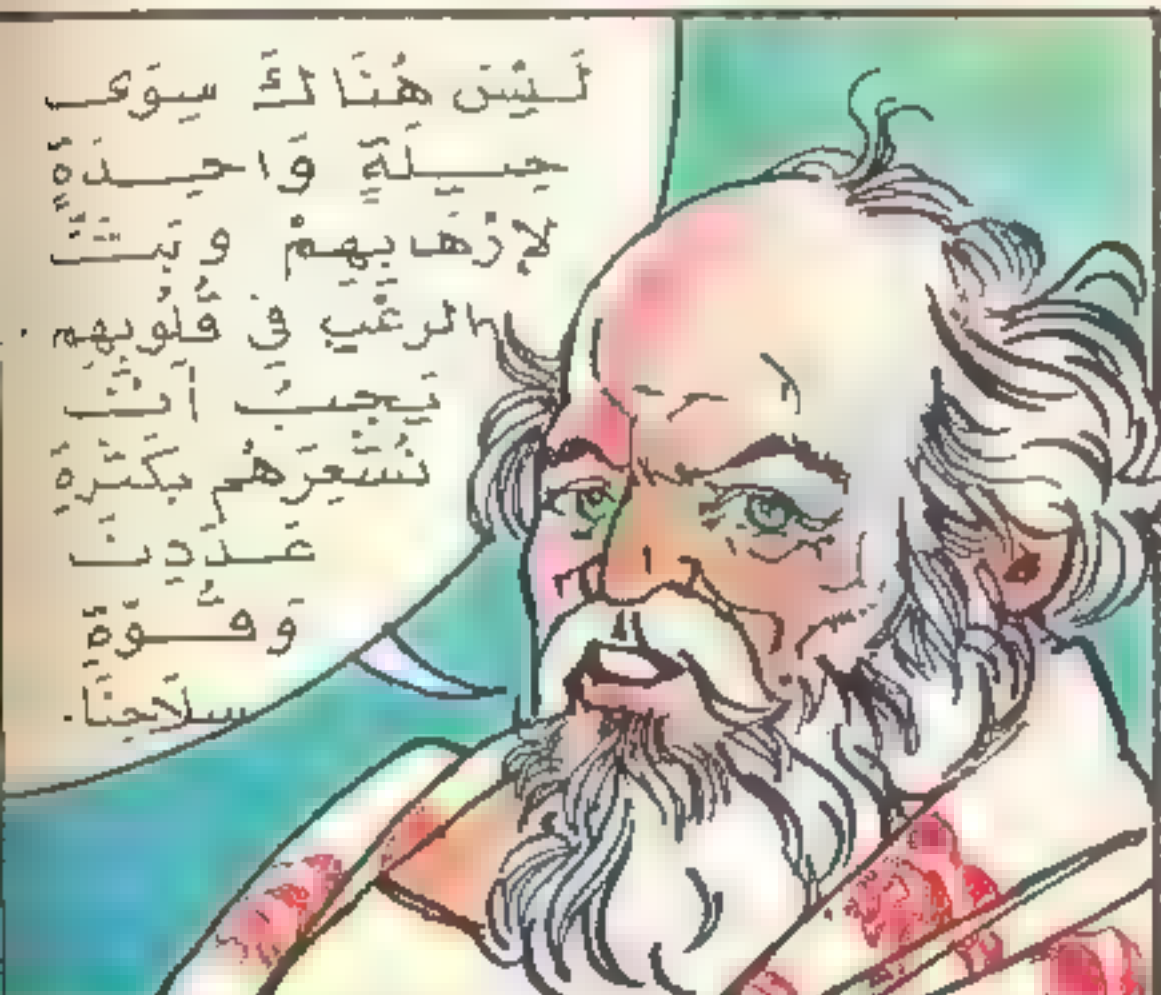 لَيْسَ هُنَاكَ سِوَى
حِيلَةٍ وَاحِدَةٍ
لإِرْهَابِهِمْ وَبَثِّ
الرُعْبِ فِي قُلُوبِهِم .
يَجِبُ أَنْ
نُشْعِرَهُم بِكَثْرَةِ
عَدَدِنَا
وَقُوَّةِ
سِلَاحِنَا .